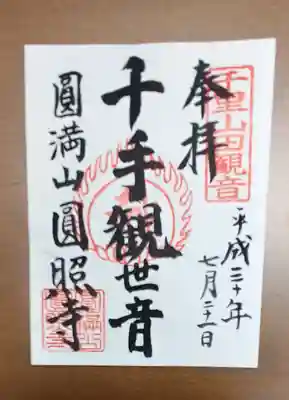 奉拝
千里山観音
平成三十年
七月二十一日
千手観世音
圓満山圓照寺